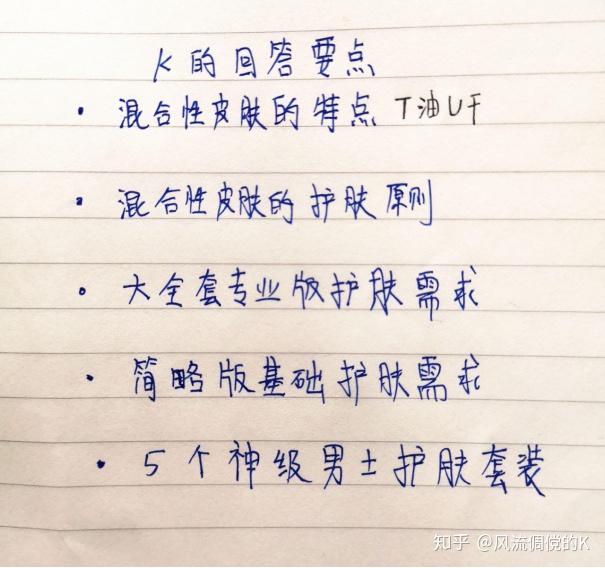 K的回答要点
· 混合性皮肤的特点 T油U干
· 混合性皮肤的护肤原则
· 大全套专业版护肤需求
· 简略版基础护肤需求
· 5个神级男士护肤套装
知乎 @风流倜傥的K